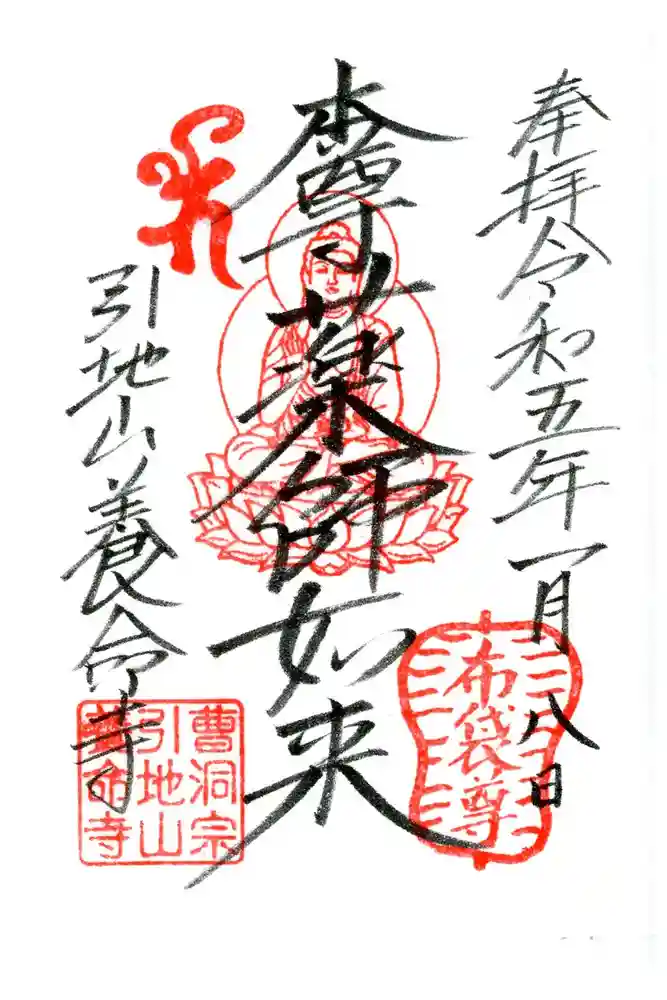 奉拝令和五年一月八日
本尊薬師如来
引地山養命寺
布袋尊
曹洞宗
引地山
養命寺